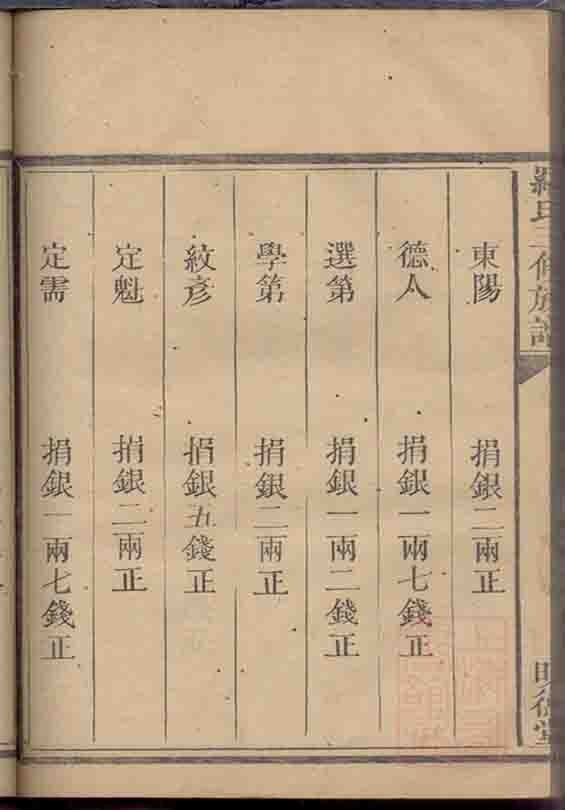 羅氏三修族譜
明德堂
東陽 捐銀二兩正
德人 捐銀一兩七錢正
選第 捐銀一兩二錢正
學第 捐銀二兩正
紋彥 捐銀五錢正
定魁 捐銀二兩正
定需 捐銀一兩七錢正